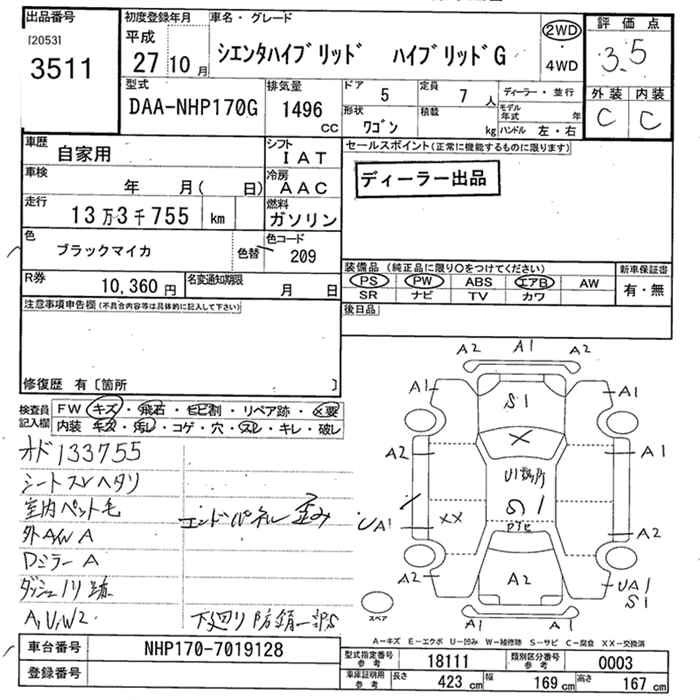 出品番号
[2053]
3511
初度登録年月
平成
27 10月
車名・グレード
シエンタハイブリッド ハイブリッドG
2WD
・
4WD
評価点
3.5
外装 内装
C C
型式
DAA-NHP170G
排気量
1496
cc
ドア 5
定員 7 人
形状 ワゴン
積載 kg
ディーラー・並行
モデル年式 年
ハンドル 左・右
車歴
自家用
シフト
IAT
車検
年 月( 日)
冷房
AAC
走行
13万3千755 km
燃料
ガソリン
色
ブラックマイカ
色替
色コード
209
R券
10,360円
名変通知期限
月 日
セールスポイント(正常に機能するものに限ります)
ディーラー出品
装備品 (純正品に限り○をつけてください)
PS PW ABS エアB AW
SR ナビ TV カワ
新車保証書
有・無
後日品
注意事項申告欄(不具合内容等は具体的に記入して下さい)
修復歴 有〔箇所 〕
検査員
記入欄
FW キズ・飛石・ヒビ割・リペア跡・×要
内装 キズ・汚し・コゲ・穴・スレ・キレ・破レ
オド133755
シートスレヘタリ
室内ペット毛
エンドパネル歪み
外AW A
DミラーA
ダッシュノリ跡
A,U,W2
下廻り防錆一部S
A2 A1 A2
A1 S1 A1
×
A2 A1
S1
UA1 XX A2
A2 A2 UA1
S1
A1 A1
スペア
A-キズ E-エクボ U-凹み W-補修跡 S-サビ C-腐食 XX-交換済
車台番号
NHP170-7019128
登録番号
型式指定番号
参考
18111
類別区分番号
参考
0003
車庫証明用
参考
長さ 423 cm
幅 169 cm
高さ 167 cm